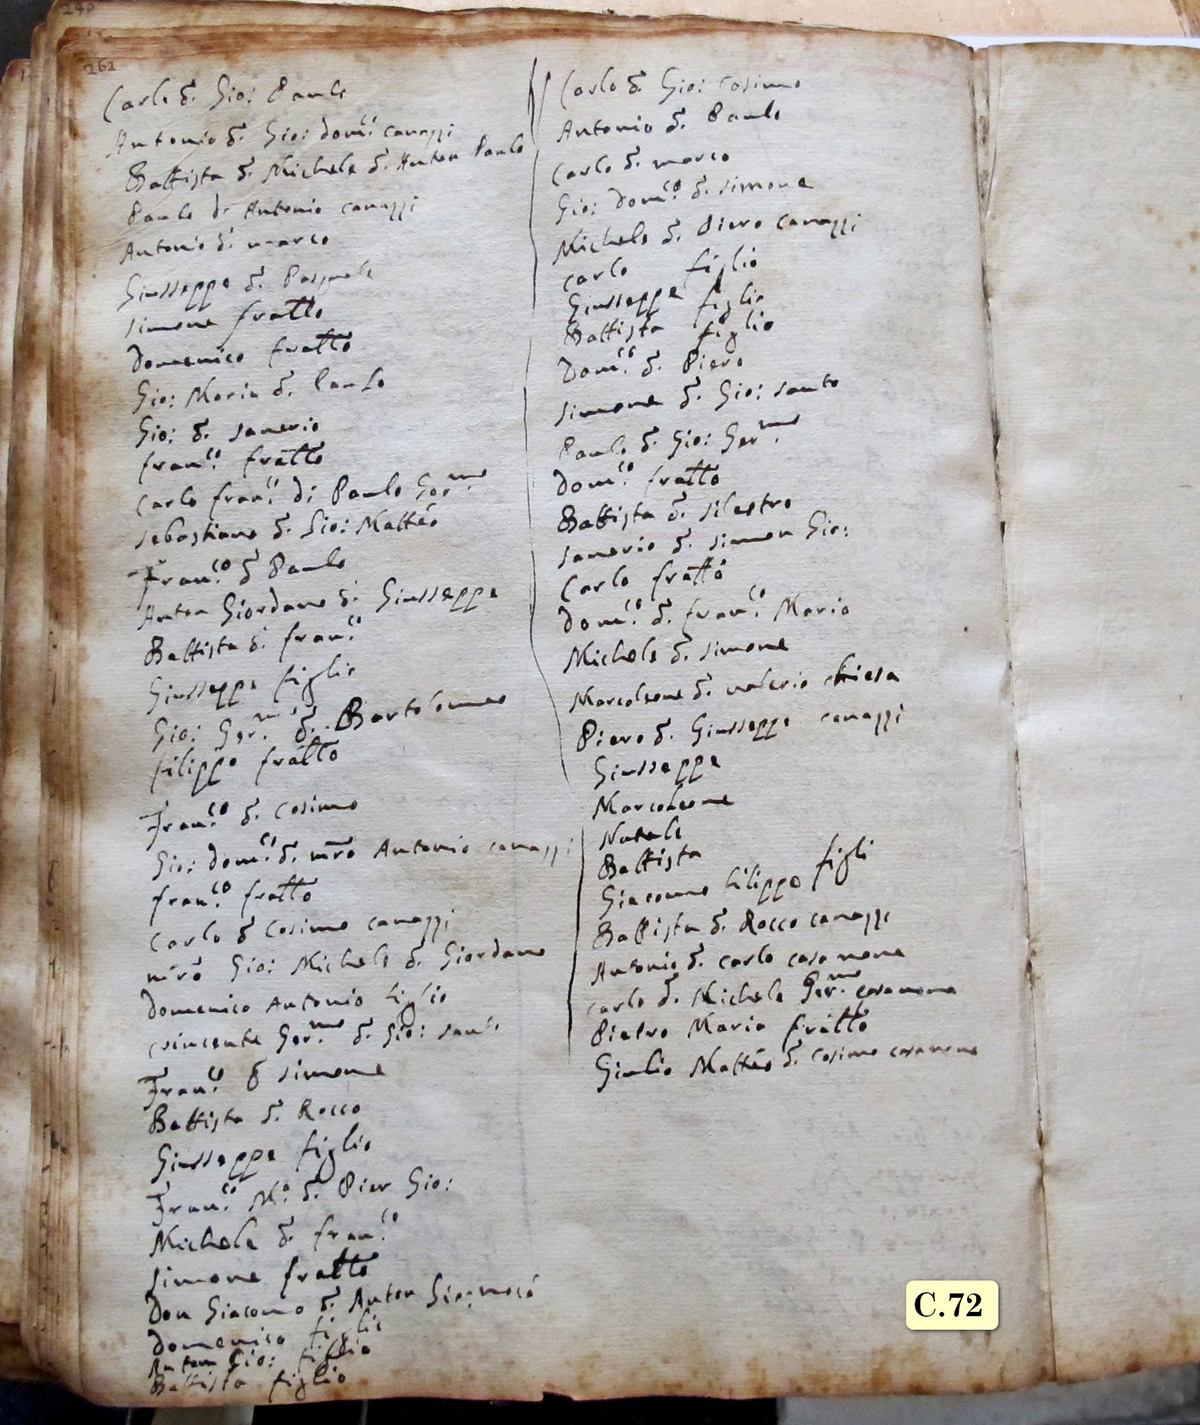 240
262
Carlo q. Gio: Paulo
Antonio q. Gio: Dom.co canazzi
Battista q. Michele q. Anton Paulo
Paulo di Antonio canazzi
Antonio q. marco
Giusseppe q. Pasquale
simone fratto
Domenico fratto
Gio: Maria q. Paulo
Gio: q. sanerio
fran.co fratto
Carlo fran.co di Paulo Ger.mo
sebastiano q. Gio: Matteo
Fran.co q. Paulo
Anton Giordano q. Giusseppe
Battista q. fran.co
Giusseppe figlio
Gio: Ger.mo q. Bartolomeo
filippo fratto
Fran.co q. Cosimo
Gio: Dom.co q. mro Antonio canazzi
fran.co fratto
Carlo q. Cosimo canazzi
mro Gio: Michele q. Giordano
Domenico Antonio figlio
vincente Ger.mo q. Gio: santi
Fran.co q. simone
Battista q. Rocco
Giusseppe figlio
Fran.co M.a q. Pier Gio:
Michele q. fran.co
simone fratto
Don Giacomo q. Anton Gio:
Domenico figlio
Anton Gio: figlio
Battista figlio
Carlo q. Gio: Cosimo
Antonio q. Paulo
Carlo q. marco
Gio: Dom.co q. simone
Michele q. Piero canazzi
Carlo figlio
Giusseppe figlio
Battista figlio
Dom.co q. Piero
simone q. Gio: santo
Paulo q. Gio: Ger.mo
Dom.co fratto
Battista q. silestro
sanerio q. simon Gio:
Carlo fratto
Dom.co q. fran.co Maria
Michele q. simone
Marcoleone q. valerio chiesa
Piero q. Giusseppe canazzi
Giusseppe
Marcoleone
Natale
Battista
Giacomo filippo figli
Battista q. Rocco canazzi
Antonio q. carlo casanona
carlo q. Michele Ger.mo casanona
Pietro Maria fratto
Giulio Matteo q. Cosimo casanona
C.72